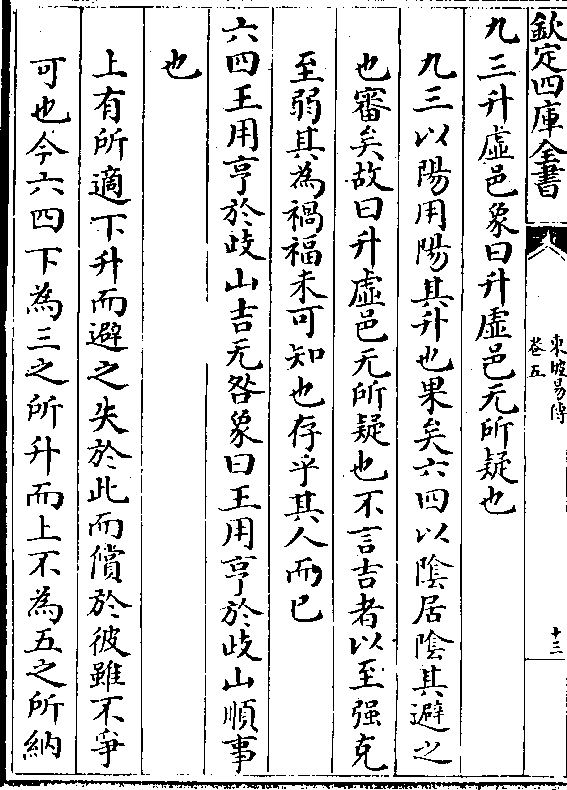 欽定四庫全書
東坡易傳
卷五
十三
九三升虛邑象曰升虛邑无所疑也
九三以陽用陽其升也果矣六四以陰居陰其避之
也審矣故曰升虛邑无所疑也不言吉者以至强克
至弱其為禍福未可知也存乎其人而已
六四王用亨於歧山吉无咎象曰王用亨於歧山順事
也
上有所適下升而避之失於此而償於彼雖不爭
可也今六四下為三之所升而上不為五之所納